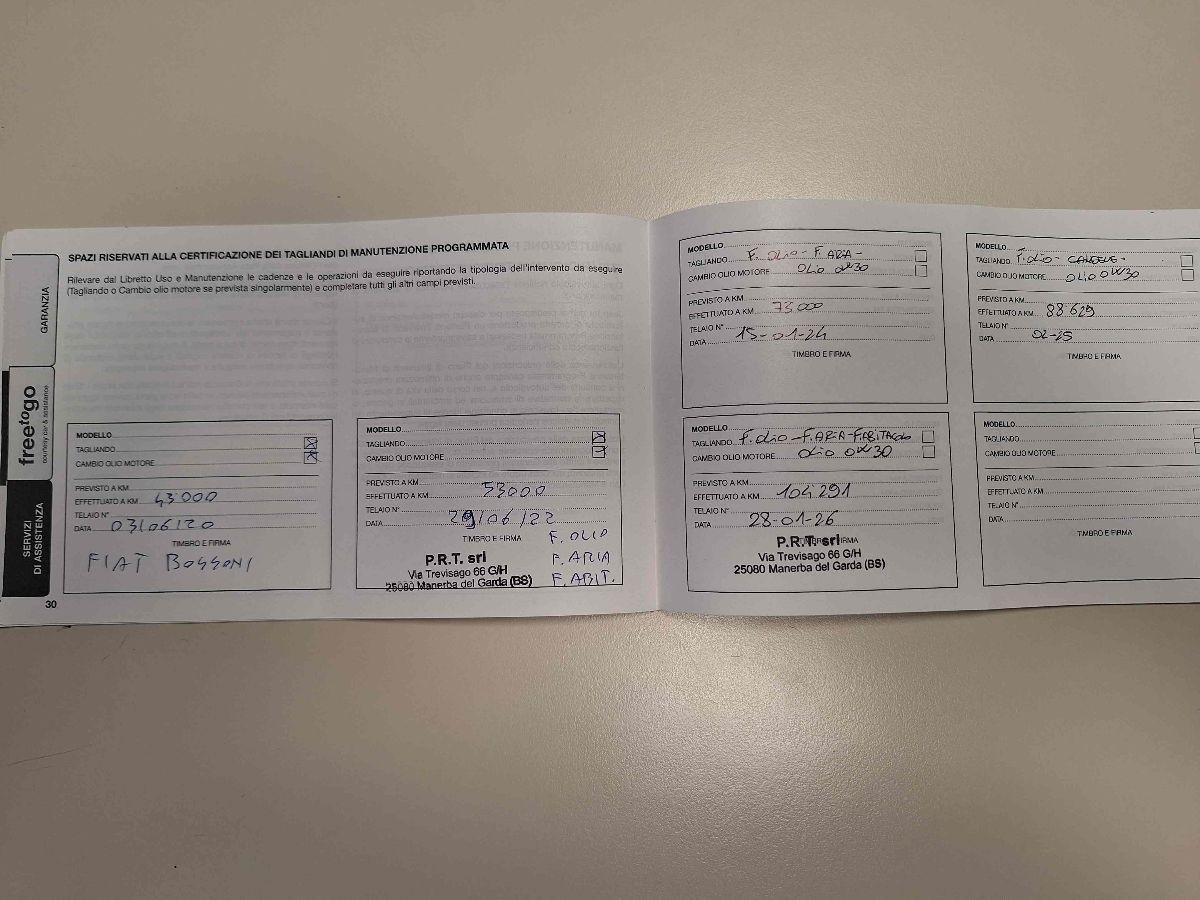 SPAZI RISERVATI ALLA CERTIFICAZIONE DEI TAGLIANDI DI MANUTENZIONE PROGRAMMATA
Rilevare dal Libretto Uso e Manutenzione le cadenze e le operazioni da eseguire riportando la tipologia dell'intervento da eseguire
(Tagliando o Cambio olio motore se prevista singolarmente) e completare tutti gli altri campi previsti.
GARANZIA
freetogo
courtesy car & assistance
SERVIZI
DI ASSISTENZA
MODELLO
TAGLIANDO
CAMBIO OLIO MOTORE
PREVISTO A KM
EFFETTUATO A KM 43'000
TELAIO N°
DATA 03/06/20
TIMBRO E FIRMA
FIAT BOSSONI
30
MODELLO
TAGLIANDO
CAMBIO OLIO MOTORE
PREVISTO A KM
EFFETTUATO A KM 53000
TELAIO N°
DATA 29/06/22
TIMBRO E FIRMA
F. OLIO
F. ARIA
F. ABIT.
P.R.T. srl
Via Trevisago 66 G/H
25080 Manerba del Garda (BS)
MODELLO
TAGLIANDO F. OLIO - F. ARIA -
CAMBIO OLIO MOTORE OLIO 0W30
PREVISTO A KM
EFFETTUATO A KM 73000
TELAIO N°
DATA 15-01-24
TIMBRO E FIRMA
MODELLO
TAGLIANDO F. OLIO -
CAMBIO OLIO MOTORE OLIO 0W30
PREVISTO A KM
EFFETTUATO A KM 88629
TELAIO N°
DATA 02-25
TIMBRO E FIRMA
MODELLO
TAGLIANDO F. OLIO - F. ARIA - F. ABITACOLO
CAMBIO OLIO MOTORE OLIO 0W30
PREVISTO A KM
EFFETTUATO A KM 104291
TELAIO N°
DATA 28-01-26
P.R.T. srl
FIRMA
Via Trevisago 66 G/H
25080 Manerba del Garda (BS)
MODELLO
TAGLIANDO
CAMBIO OLIO MOTORE
PREVISTO A KM
EFFETTUATO A KM
TELAIO N°
DATA
TIMBRO E FIRMA